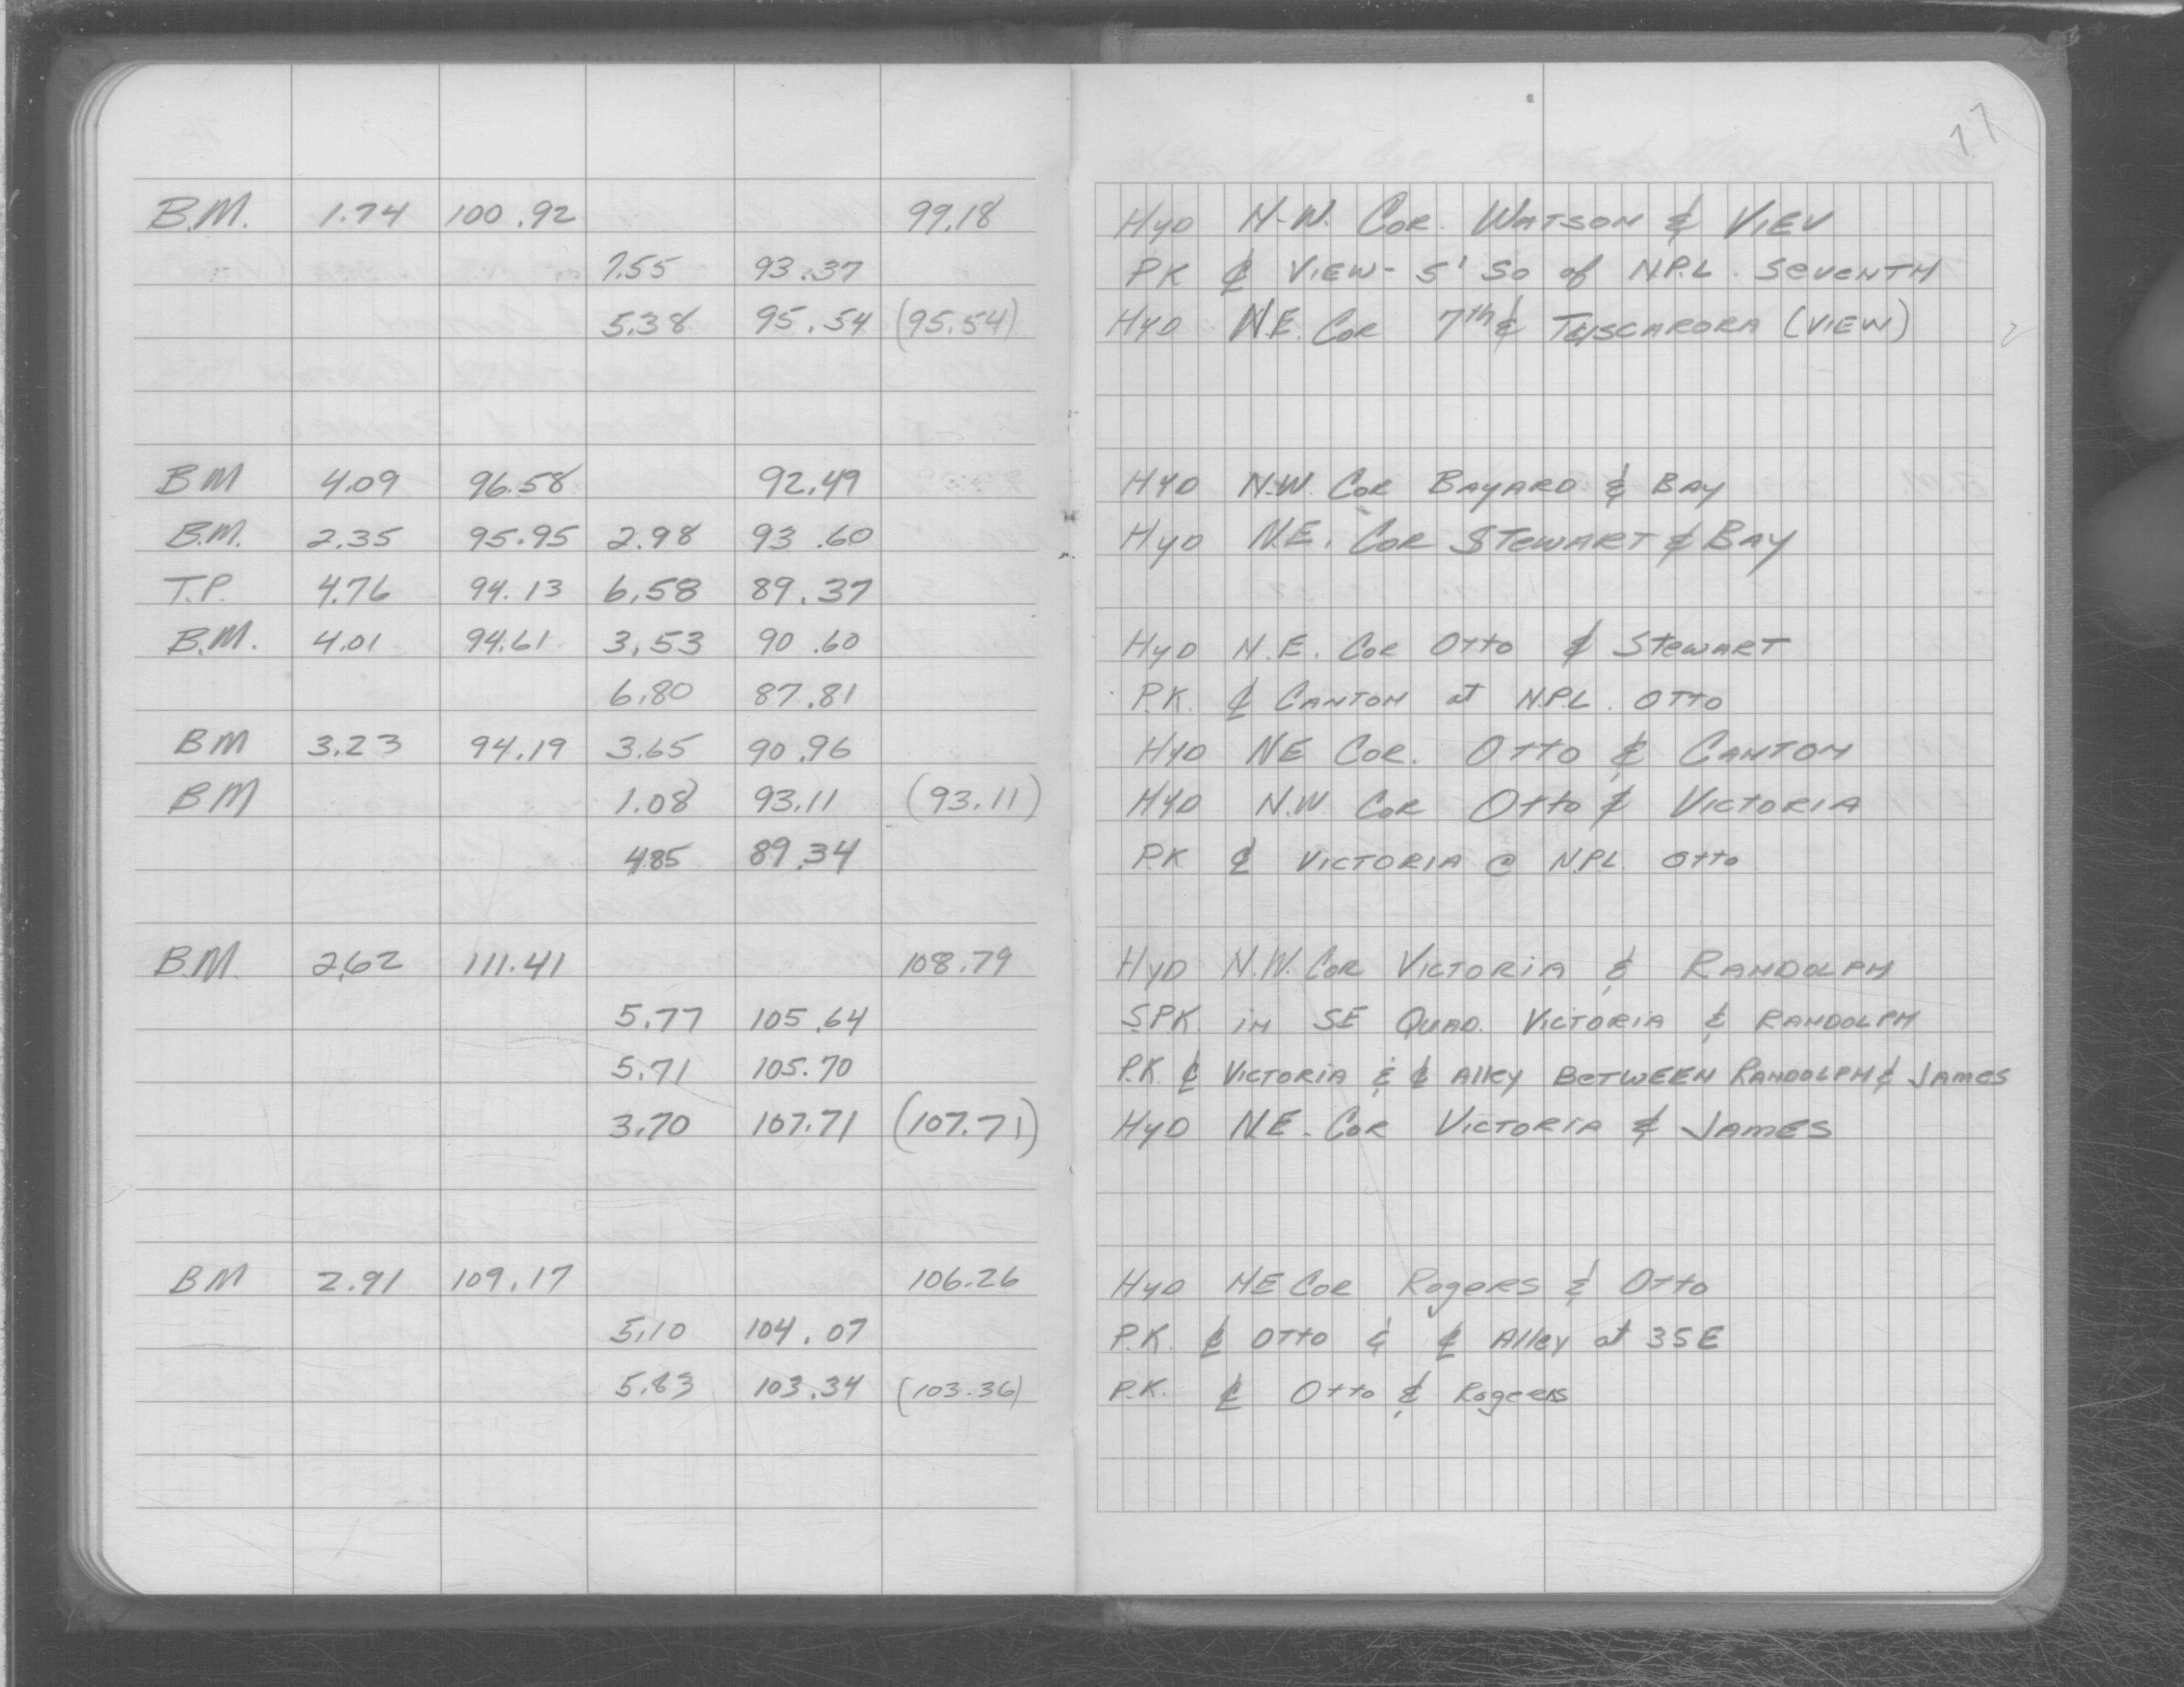 77
B.M. 1.74 100.92 99.18 Hyd N-W. Cor. Watson & Viev
7.55 93.37 PK ℄ View - 5' So of N.P.L. Seventh
5.38 95.54 (95.54) Hyd N.E. Cor 7th & Tuscarora (View)
BM 4.09 96.58 92.49 Hyd N.W. Cor Bayard & Bay
B.M. 2.35 95.95 2.98 93.60 Hyd N.E. Cor Stewart & Bay
T.P. 4.76 94.13 6.58 89.37
B.M. 4.01 94.61 3.53 90.60 Hyd N.E. Cor Otto & Stewart
6.80 87.81 P.K. ℄ Canton at N.P.L. Otto
BM 3.23 94.19 3.65 90.96 Hyd NE Cor. Otto & Canton
BM 1.08 93.11 (93.11) Hyd N.W Cor Otto & Victoria
4.85 89.34 P.K ℄ Victoria @ N.P.L. Otto
B.M. 2.62 111.41 108.79 Hyd N.W. Cor Victoria & Randolph
5.77 105.64 SPK. in SE Quad. Victoria & Randolph
5.71 105.70 P.K. ℄ Victoria & ℄ Alley Between Randolph & James
3.70 107.71 (107.71) Hyd N.E. Cor Victoria & James
BM 2.91 109.17 106.26 Hyd NE Cor Rogers & Otto
5.10 104.07 P.K. ℄ Otto & ℄ Alley at 35E
5.83 103.34 (103.36) P.K. ℄ Otto & Rogers